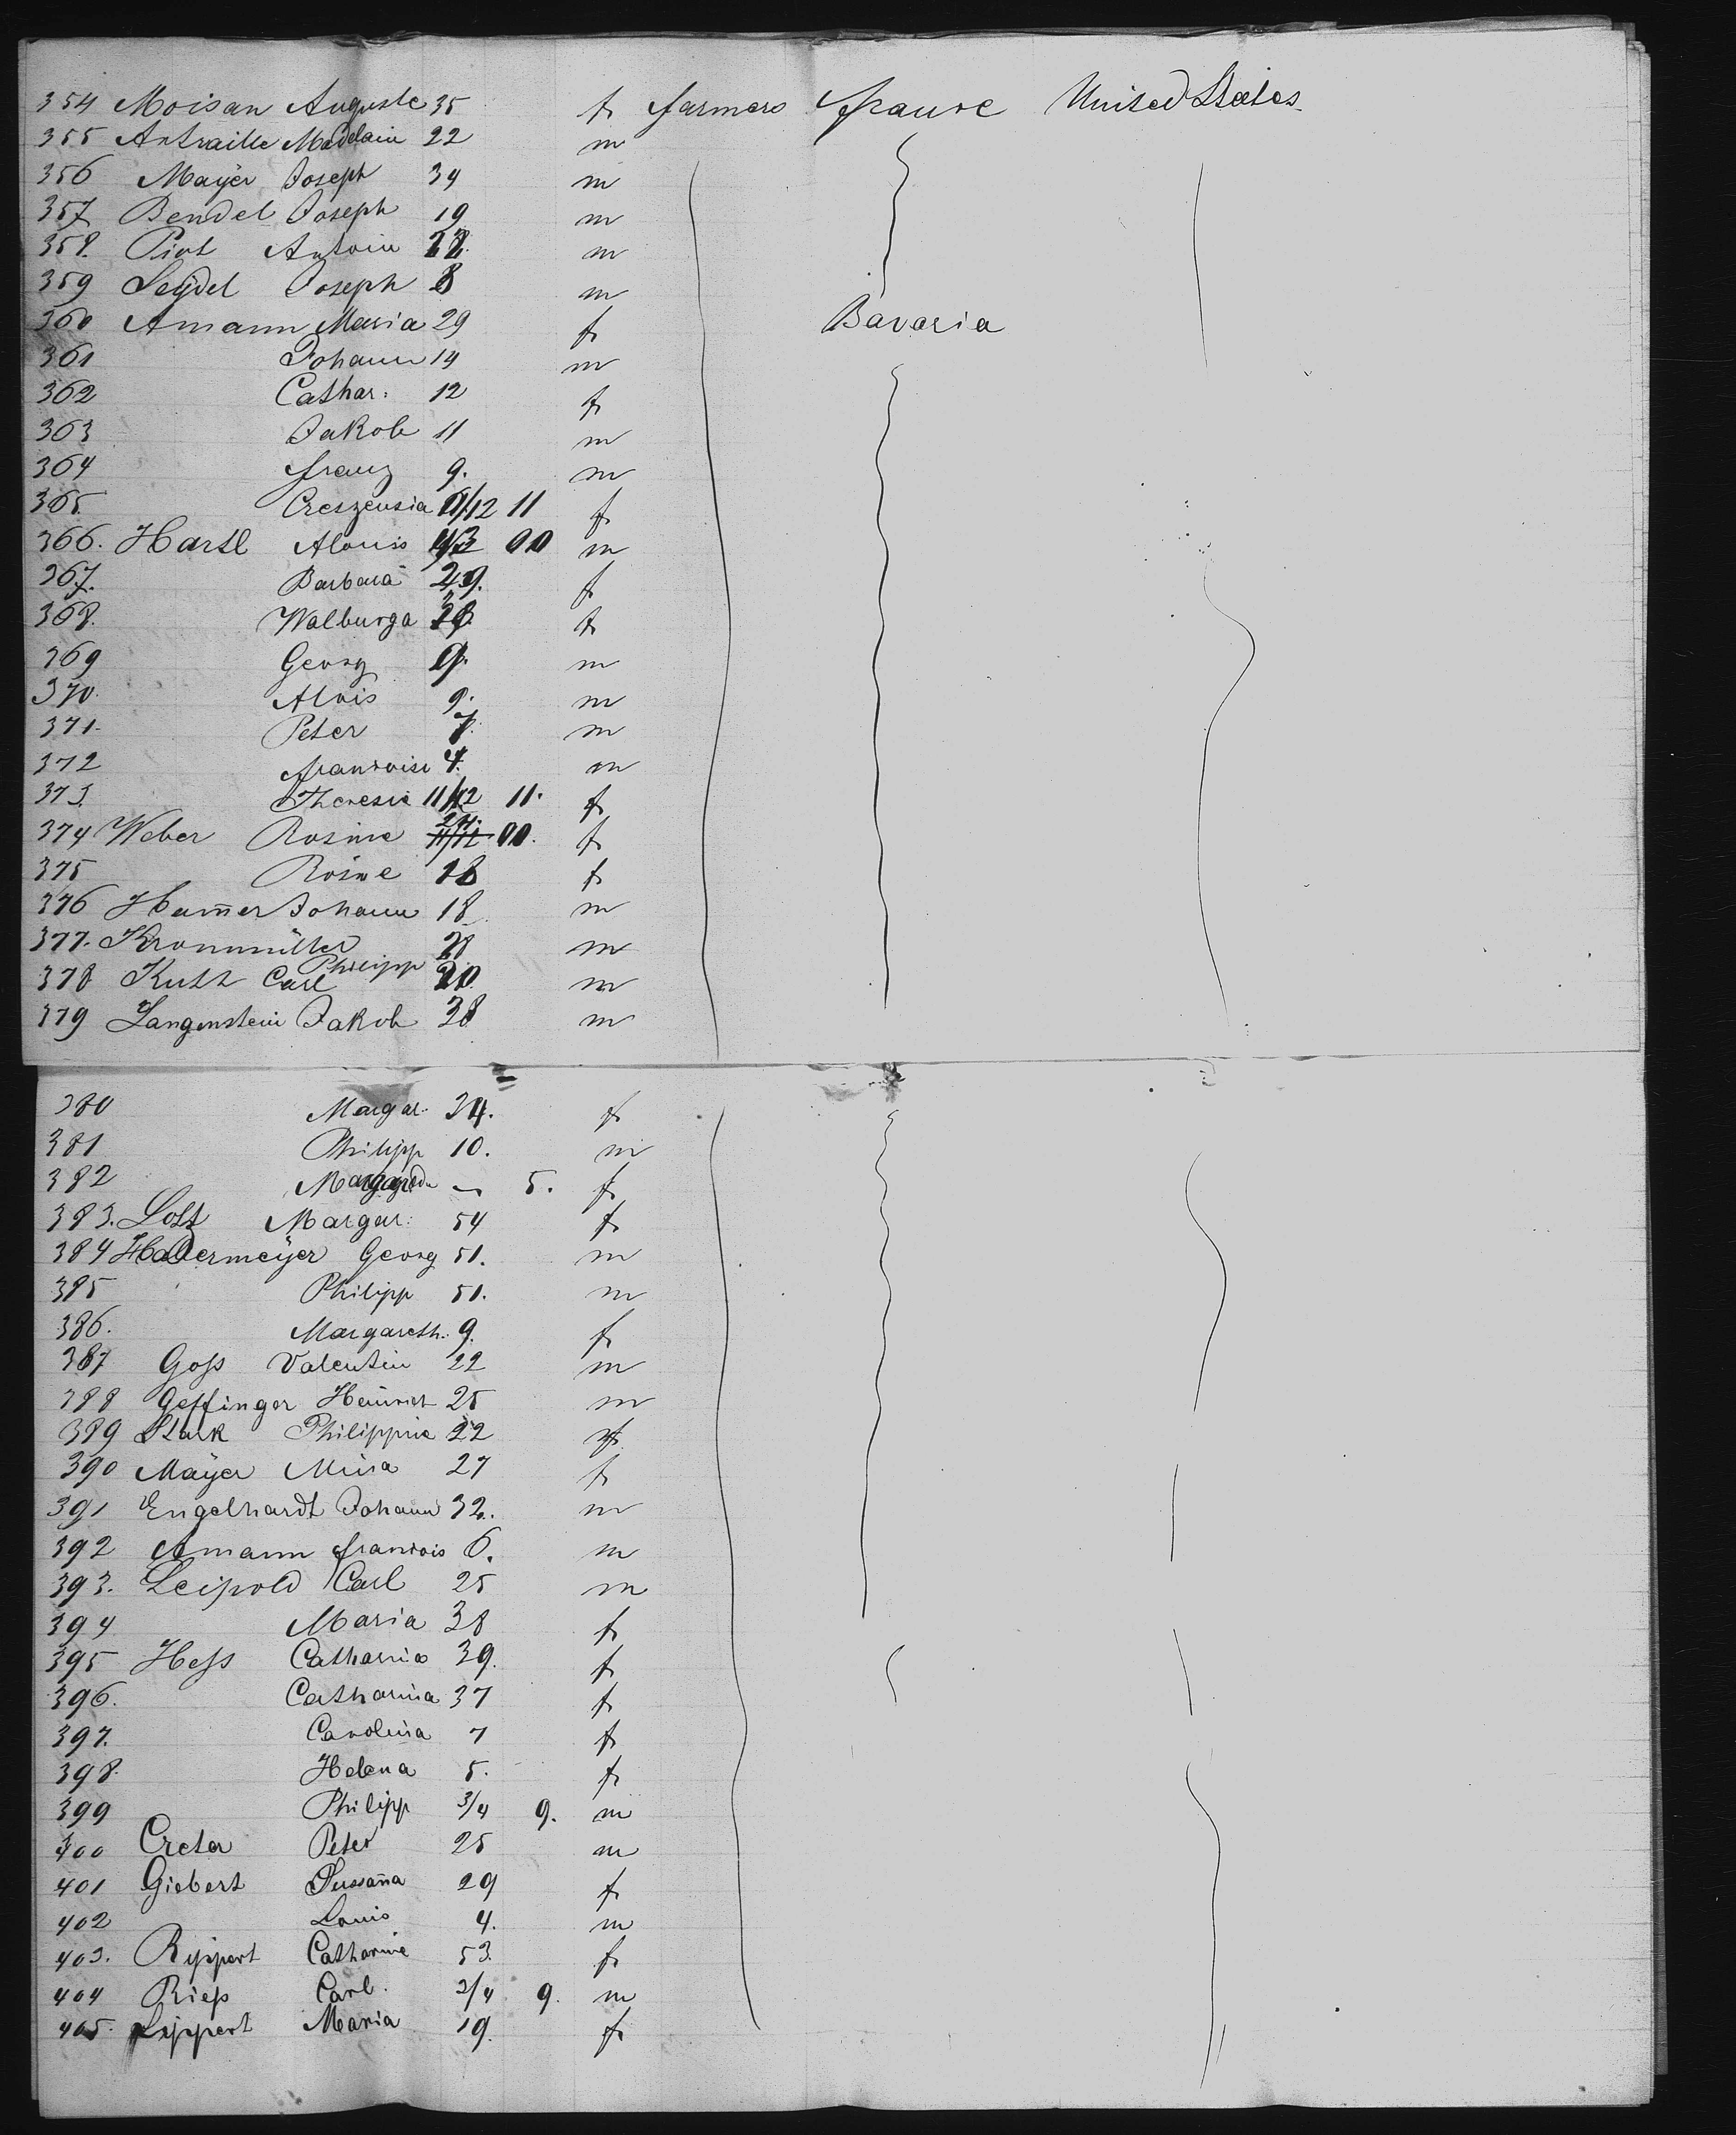 354 Moisan Auguste 35 f farmers france United States
355 Antraille Madelain 22 m
356 Mayer Joseph 34 m
357 Bendel Joseph 19 m
358. Piot Antoin m
359 Seydel Joseph 8 m
360 Amann Maria 29 f Bavaria
361 Johann 14 m
362 Cathar. 12 f
363 Jakob 11 m
364 franz 9. m
365 Creszensia 11/12 11 f
366. Hartl Alouis m
367. Barbara f
368. Walburga f
369 Georg m
370. Alois 9. m
371. Peter 7. m
372 francoise 4. m
373. Theresia 11/12 11. f
374 Weber Rosine f
375 Rosine 18 f
376 Ham̄er Johann 18 m
377. Kronmüller Philipp 28 m
378 Kutz Carl 20. m
379 Langenstein Jakob 38 m
380 Margar. 34. f
381 Philipp 10. m
382 5. f
383. Lotz Margar. 54 f
384 Habermeyer Georg 51. m
385 Philipp 51. m
386. Margareth. 9. f
387 Goss Valentin 22 m
388 Geffinger Heinrich 25 m
389 Stark Philippine 22 f
390 Mayer Mina 27 f
391 Engelhardt Johann 32. m
392 Amann francois 6. m
393. Leipold Carl 25 m
394 Maria 38 f
395 Hess Catharina 39. f
396. Catharina 37 f
397. Carolina 7 f
398. Helena 5. f
399 Philipp 3/4 9. m
400 Creter Peter 25 m
401 Giebert Susan̄a 29 f
402 Louis 4. m
403. Ryppert Catharine 53. f
404 Riess Carl. 3/4 9. m
405. Lippert Maria 19. f